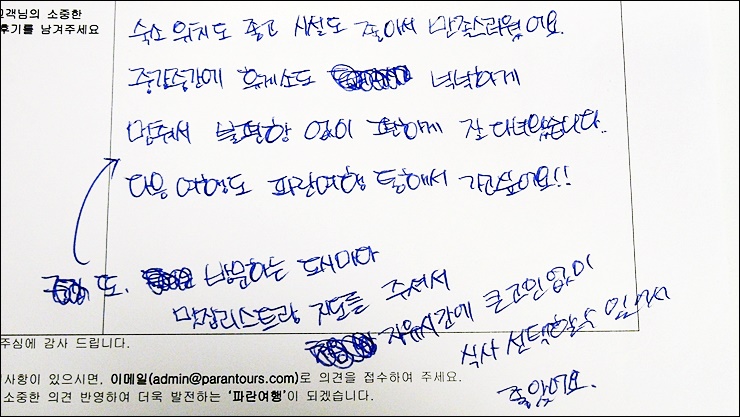 고객님의 소중한
후기를 남겨주세요
숙소 위치도 좋고 시설도 좋아서 만족스러웠어요.
중간중간에 휴게소도 넉넉하게
맞춰서 불편함 없이 편하게 잘 다녀왔습니다..
다음 여행도 파란여행 통해서 가고싶어요!!
또. 방문하는 도시마다
맛집리스트랑 지도를 주셔서
자유시간에 큰 고민 없이
식사 선택할 수 있어서
좋았어요.
주심에 감사 드립니다.
사항이 있으시면, 이메일(admin@parantours.com)로 의견을 접수하여 주세요.
소중한 의견 반영하여 더욱 발전하는 '파란여행'이 되겠습니다.